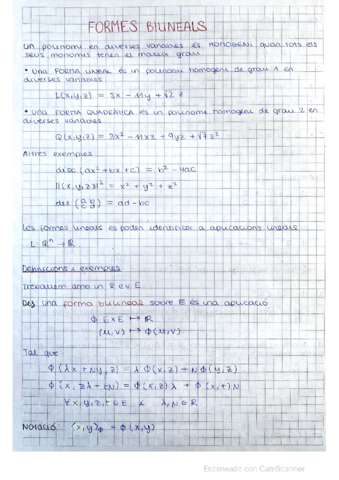 FORMES BILINEALS
Un polinomi en diverses variables és HOMOGENI quan tots els
seus monomis tenen el mateix grau.
• Una FORMA LINEAL és un polinomi homogeni de grau 1 en
diverses variables
L(x,y,z) = 3x - 11y + √2 z
• Una FORMA QUADRÀTICA és un polinomi homogeni de grau 2 en
diverses variables.
Q(x,y,z) = 3x² - 11xz + 9yz + √7 z²
Altres exemples
disc (ax² + bx + c) = b² - 4ac
||(x,y,z)||² = x² + y² + z²
det (a b
c d) = ad - bc
Les formes lineals es poden identificar a aplicacions lineals
L: ℝⁿ → ℝ
Definicions i exemples
Treballem amb un ℝ e.v E
Def Una forma bilineal sobre E és una aplicació
ϕ E×E ↦ ℝ
(u,v) ↦ ϕ(u,v)
Tal que
ϕ(λx + Ny, z) = λ ϕ(x,z) + N ϕ(y,z)
ϕ(x, zλ + tN) = ϕ(x,z) λ + ϕ(x,t) N
∀ x,y,z,t ∈ E & λ,N ∈ ℝ
Notació ⟨x,y⟩ϕ = ϕ(x,y)
Escaneado con CamScanner